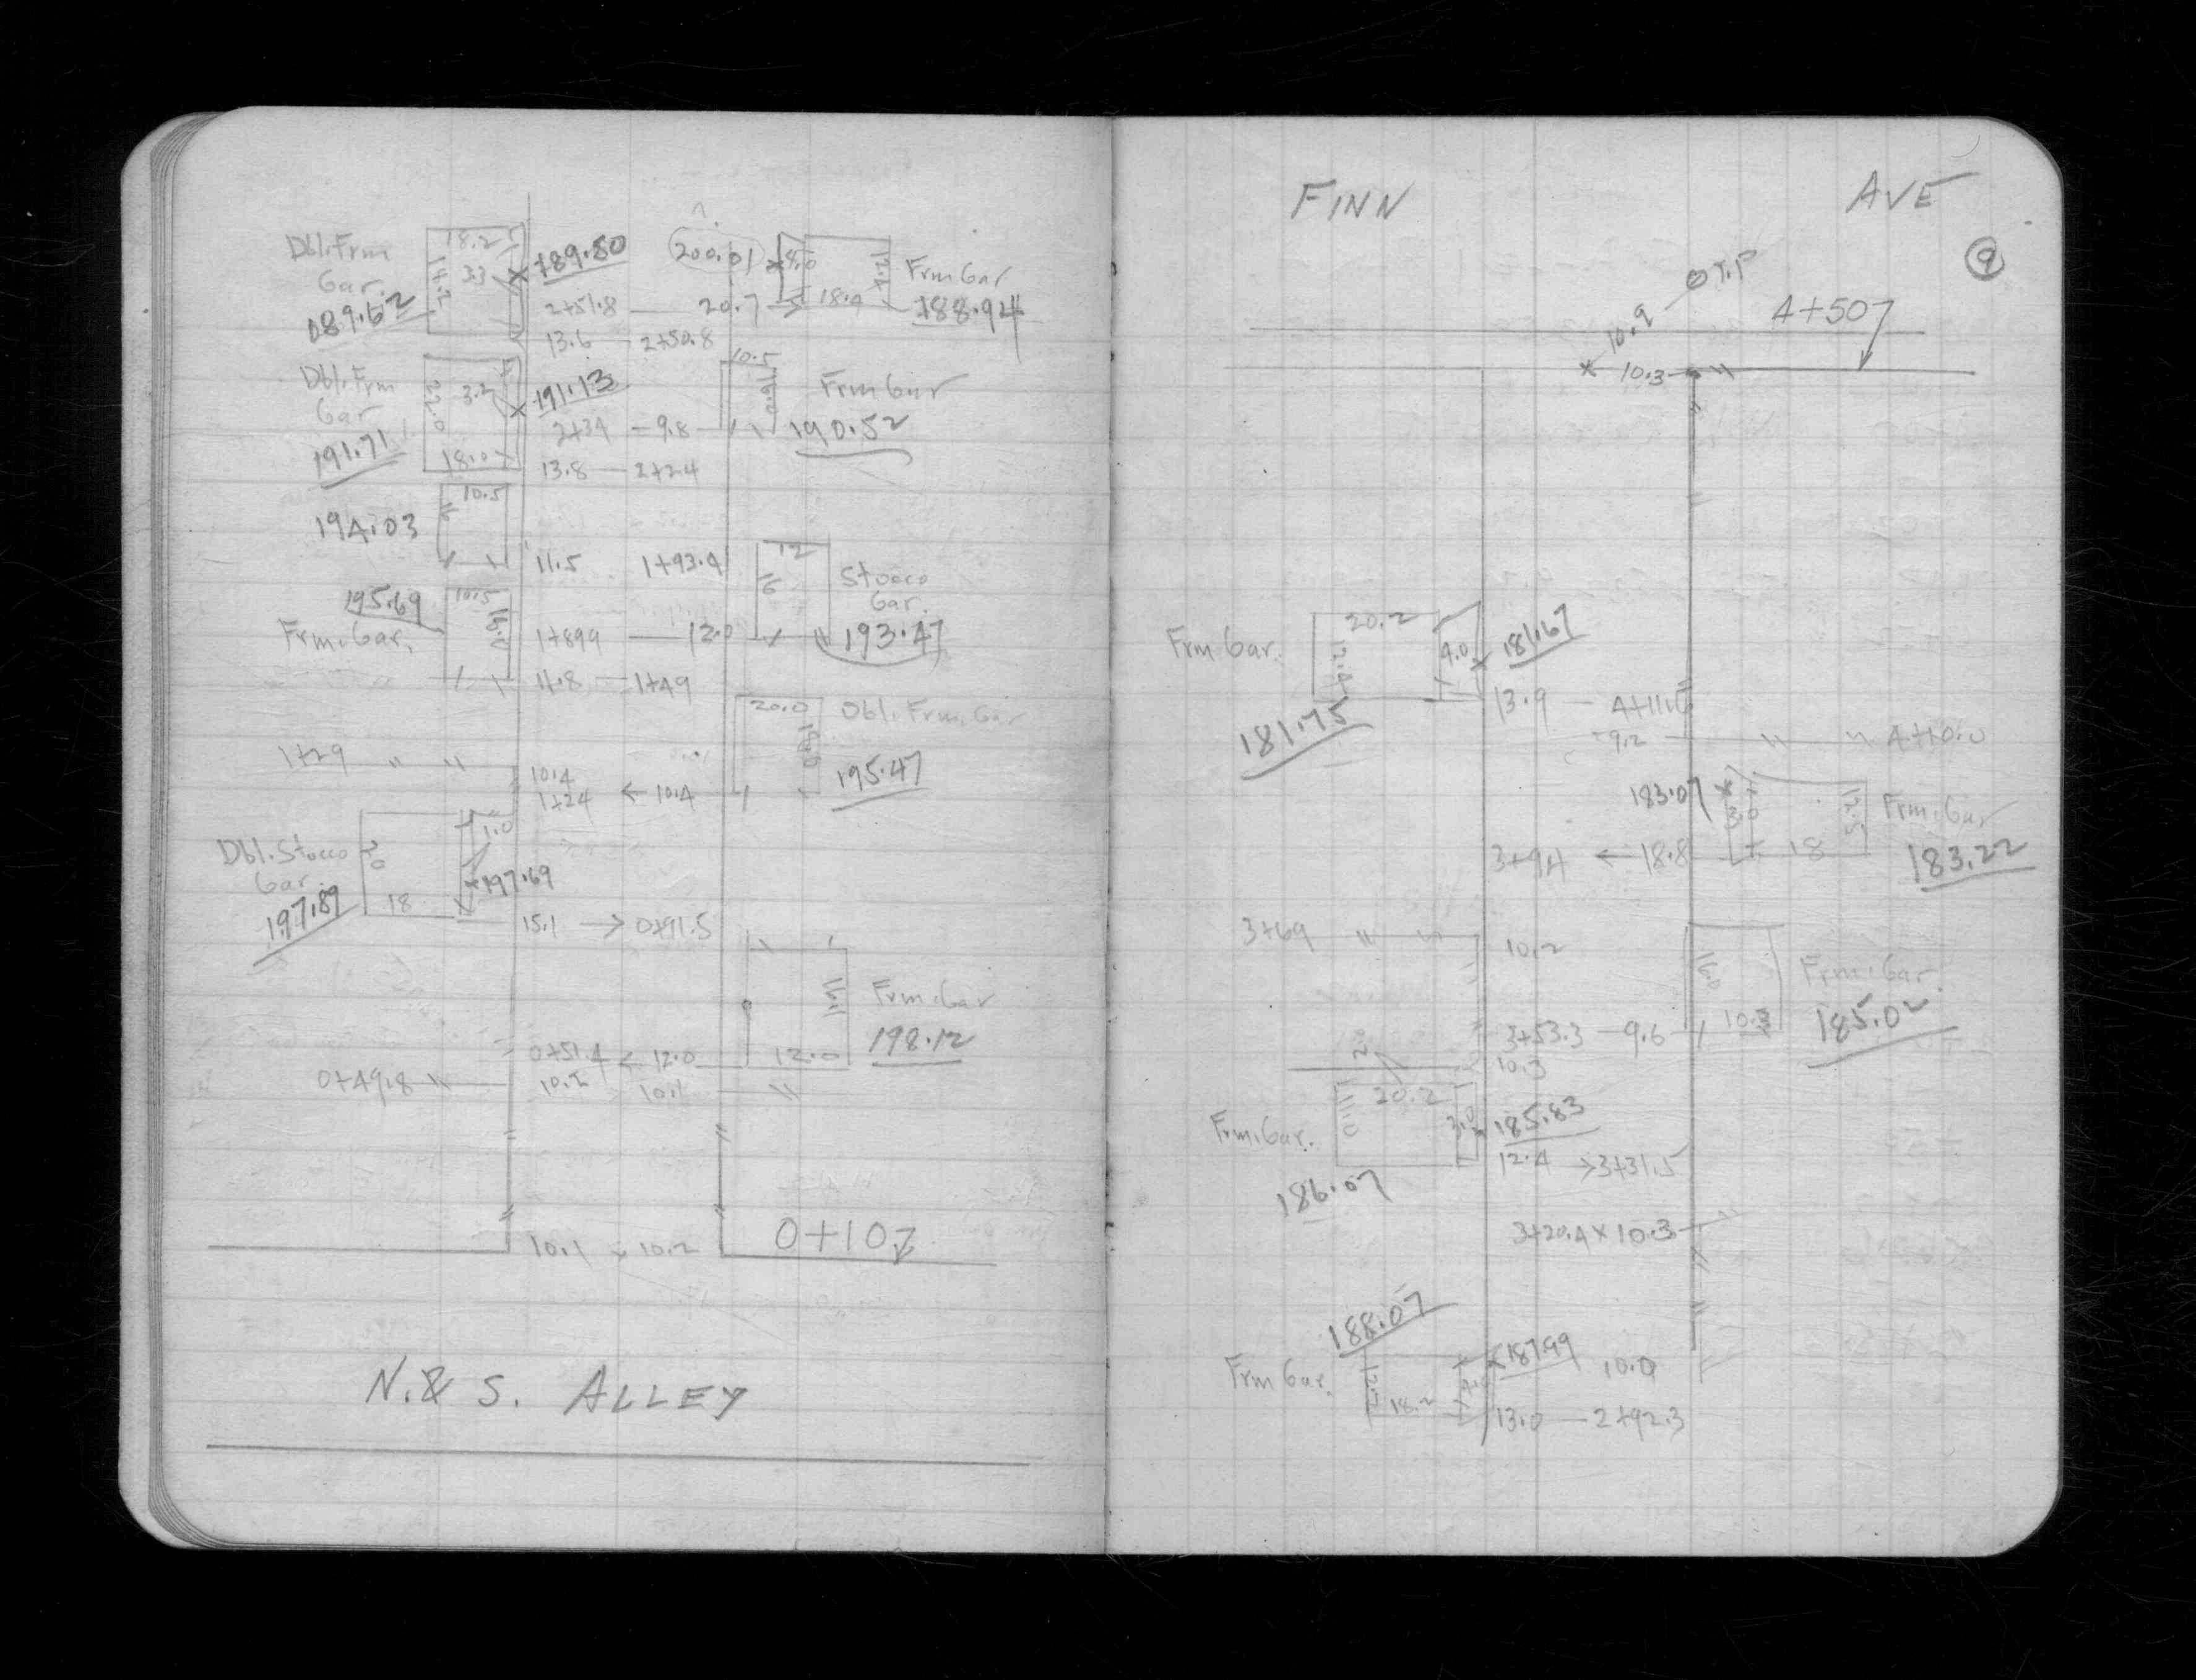 Dbl. Frm
Gar.
189.62
18.2
14.2
3.3
189.80
200.01
4.0
12.4
18.9
Frm Gar
188.94
2+51.8 — 20.7
13.6 — 2+50.8
Dbl. Frm
Gar
191.71
22.0
3.2
18.0
191.13
10.5
16.0
Frm Gar
190.52
2+34 — 9.8
13.8 — 2+24
194.03
10.5
16
11.5 1+93.4
12
16
Stucco
Gar.
193.47
195.69
Frm. Gar.
10.5
1+89.9 — 12.0
11.8 — 1+49
20.0
Dbl. Frm. Gar
195.47
1+29 " "
10.4
1+24 ← 10.4
Dbl. Stucco
Gar.
197.89
20
18
1.0
197.69
15.1 → 0+91.5
16.1
Frm. Gar
198.12
0+51.4 ← 12.0
12.0
0+49.8 "
10.2 10.1 "
10.1 10.2
0+10
N. & S. ALLEY
FINN AVE
9
T.P
10.9
4+50
10.3
Frm Gar.
20.2
12.4
4.0
181.67
181.75
13.9 — 4+11.6
9.2 " " 4+10.0
183.07
3.0
12.5
18
Frm. Gar
183.22
3+94 ← 18.8
3+69 " "
10.2
16.0
10.3
Frm. Gar
185.02
3+53.3 — 9.6
10.3
2
Frm. Gar.
11.0
20.2
3.0
185.83
186.07
12.4 → 3+31.5
3+20.4 × 10.3
188.07
Frm Gar.
12.2
18.2
187.99
10.0
13.0 — 2+92.3